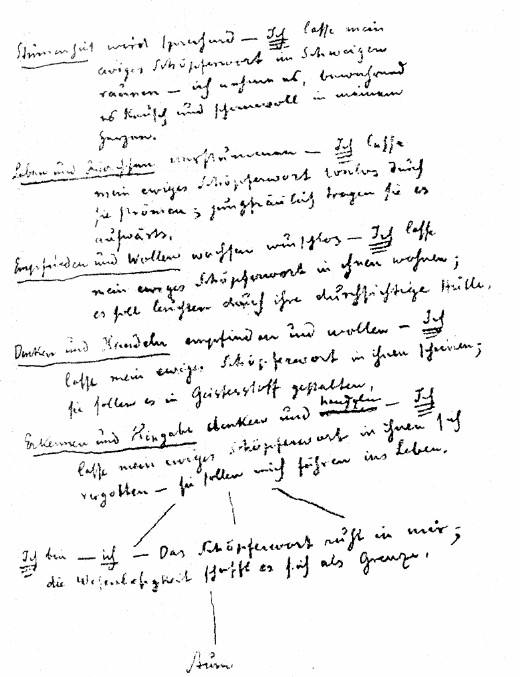 Stummheit wird sprechend – Ich lasse mein
ewiges Schöpferwort im Schweigen
raunen – ich nehme es, bewahrend
es keusch und schamvoll in meinem
Herzen.
Leben und verstummen – Ich lasse
mein ewiges Schöpferwort tonlos durch
sie strömen; jungfräulich tragen sie es
aufwärts.
Empfinden und Wollen wachsen wunschlos – Ich lasse
mein ewiges Schöpferwort in ihnen wohnen;
es soll leuchten durch ihre durchsichtige Hülle.
Denken und Handeln empfinden und wollen – Ich
lasse mein ewiges Schöpferwort in ihnen scheinen;
sie sollen es in Geistesstoff gestalten.
Erkennen und Hingabe denken und handeln – Ich
lasse mein ewiges Schöpferwort in ihnen sich
vergotten – sie sollen mich führen ins Leben.
Ich bin – ich – Das Schöpferwort ruht in mir;
die schafft es sich als Grenze.
Aum